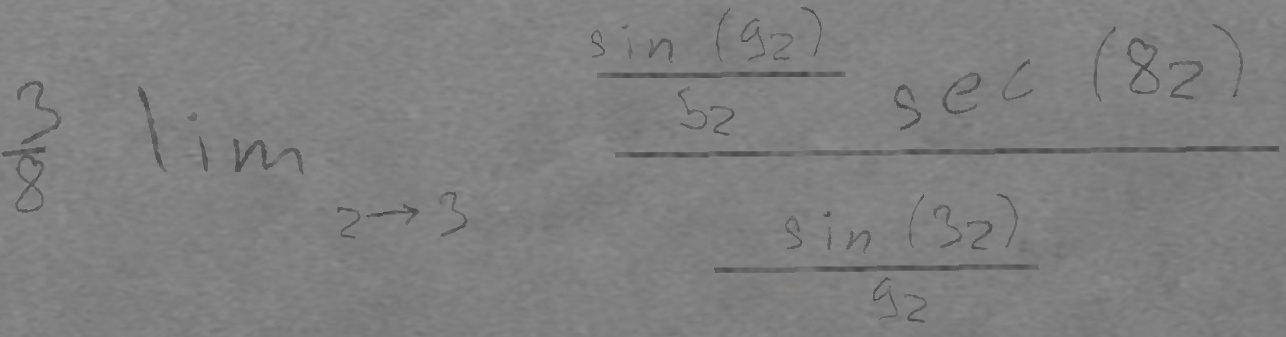 \frac{3}{8} \lim_{z \to 3} \frac{\frac{\sin (9z)}{5z} \sec (8z)}{\frac{\sin (3z)}{9z}}